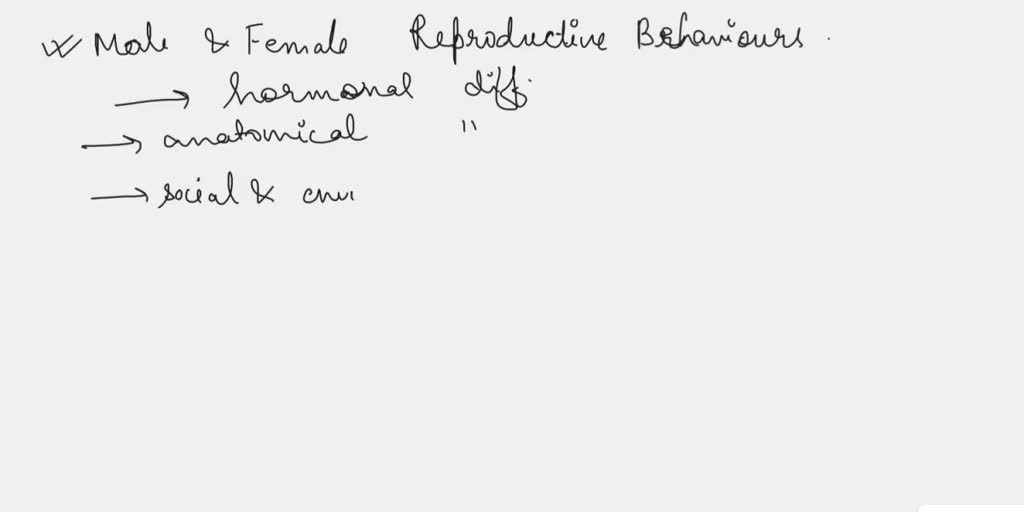 Male & Female Reproductive Behaviours.
→ hormonal diff.
→ anatomical "
→ social & envi